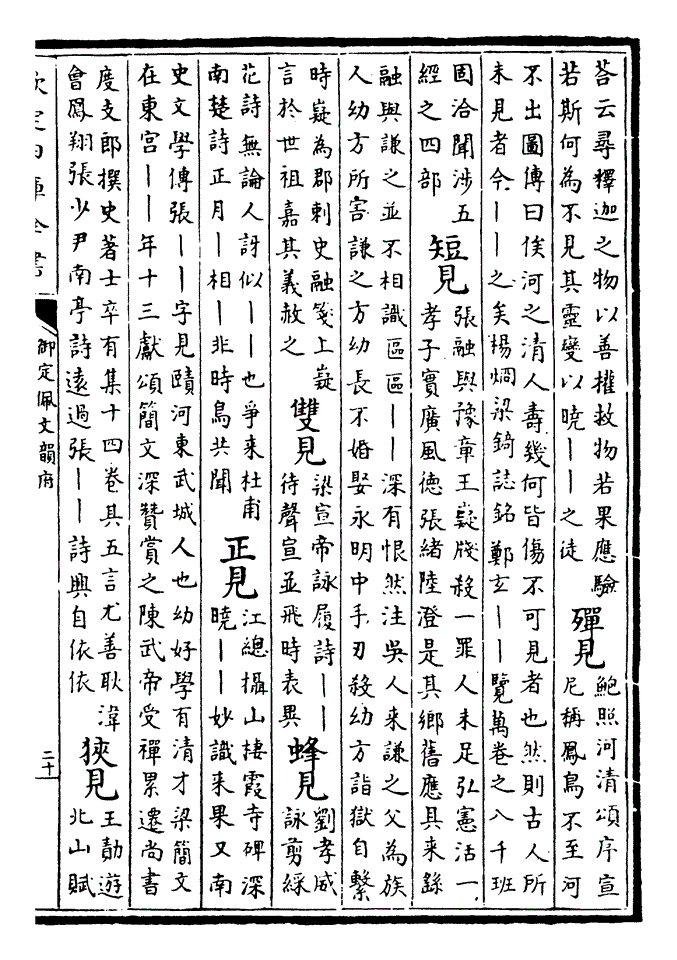 荅云尋釋迦之物以善權救物若果應驗
若斯何為不見其靈變以曉丨丨之徒
殫見
鮑照河清頌序宣
尼稱鳳鳥不至河
不出圖傳曰俟河之清人壽幾何皆傷不可見者也然則古人所
未見者今丨丨之矣楊烱梁錡誌銘鄭玄丨丨覽萬卷之八千班
固洽聞涉五
經之四部
短見
張融與豫章王嶷牋殺一罪人未足弘憲活一
孝子實廣風德張緒陸澄是其鄉舊應具來錄
融與謙之並不相識區區丨丨深有恨然注吳人来謙之父為族
人幼方所害謙之方幼長不婚娶永明中手刃殺幼方詣獄自繫
時嶷為郡刺史融箋上嶷
言於世祖嘉其義赦之
雙見
梁宣帝詠履詩丨丨
待聲宣並飛時表異
蜂見
劉孝威
詠剪綵
花詩無論人訝似丨丨也爭来杜甫
南楚詩正月丨相丨非時鳥共聞
正見
江總攝山棲霞寺碑深
曉丨丨妙識来果又南
史文學傳張丨丨字見賾河東武城人也幼好學有清才梁簡文
在東宫丨丨年十三獻頌簡文深贊賞之陳武帝受禪累遷尚書
度支郎撰史著士卒有集十四卷其五言尤善耿湋
會鳳翔張少尹南亭詩遠過張丨丨詩興自依依
狹見
王勣遊
北山賦
欽定四庫全書
御定佩文韻府
二十